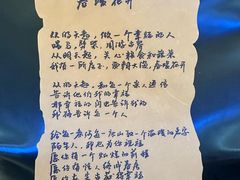 春暖花开
从明天起，做一个幸福的人
喂马，劈柴，周游世界
从明天起，关心粮食和蔬菜
我有一所房子，面朝大海，春暖花开
从明天起，和每一个亲人通信
告诉他们我的幸福
那幸福的闪电告诉我的
我将告诉每一个人
给每一条河每一座山取一个温暖的名字
陌生人，我也为你祝福
愿你有一个灿烂的前程
愿你有情人终成眷属